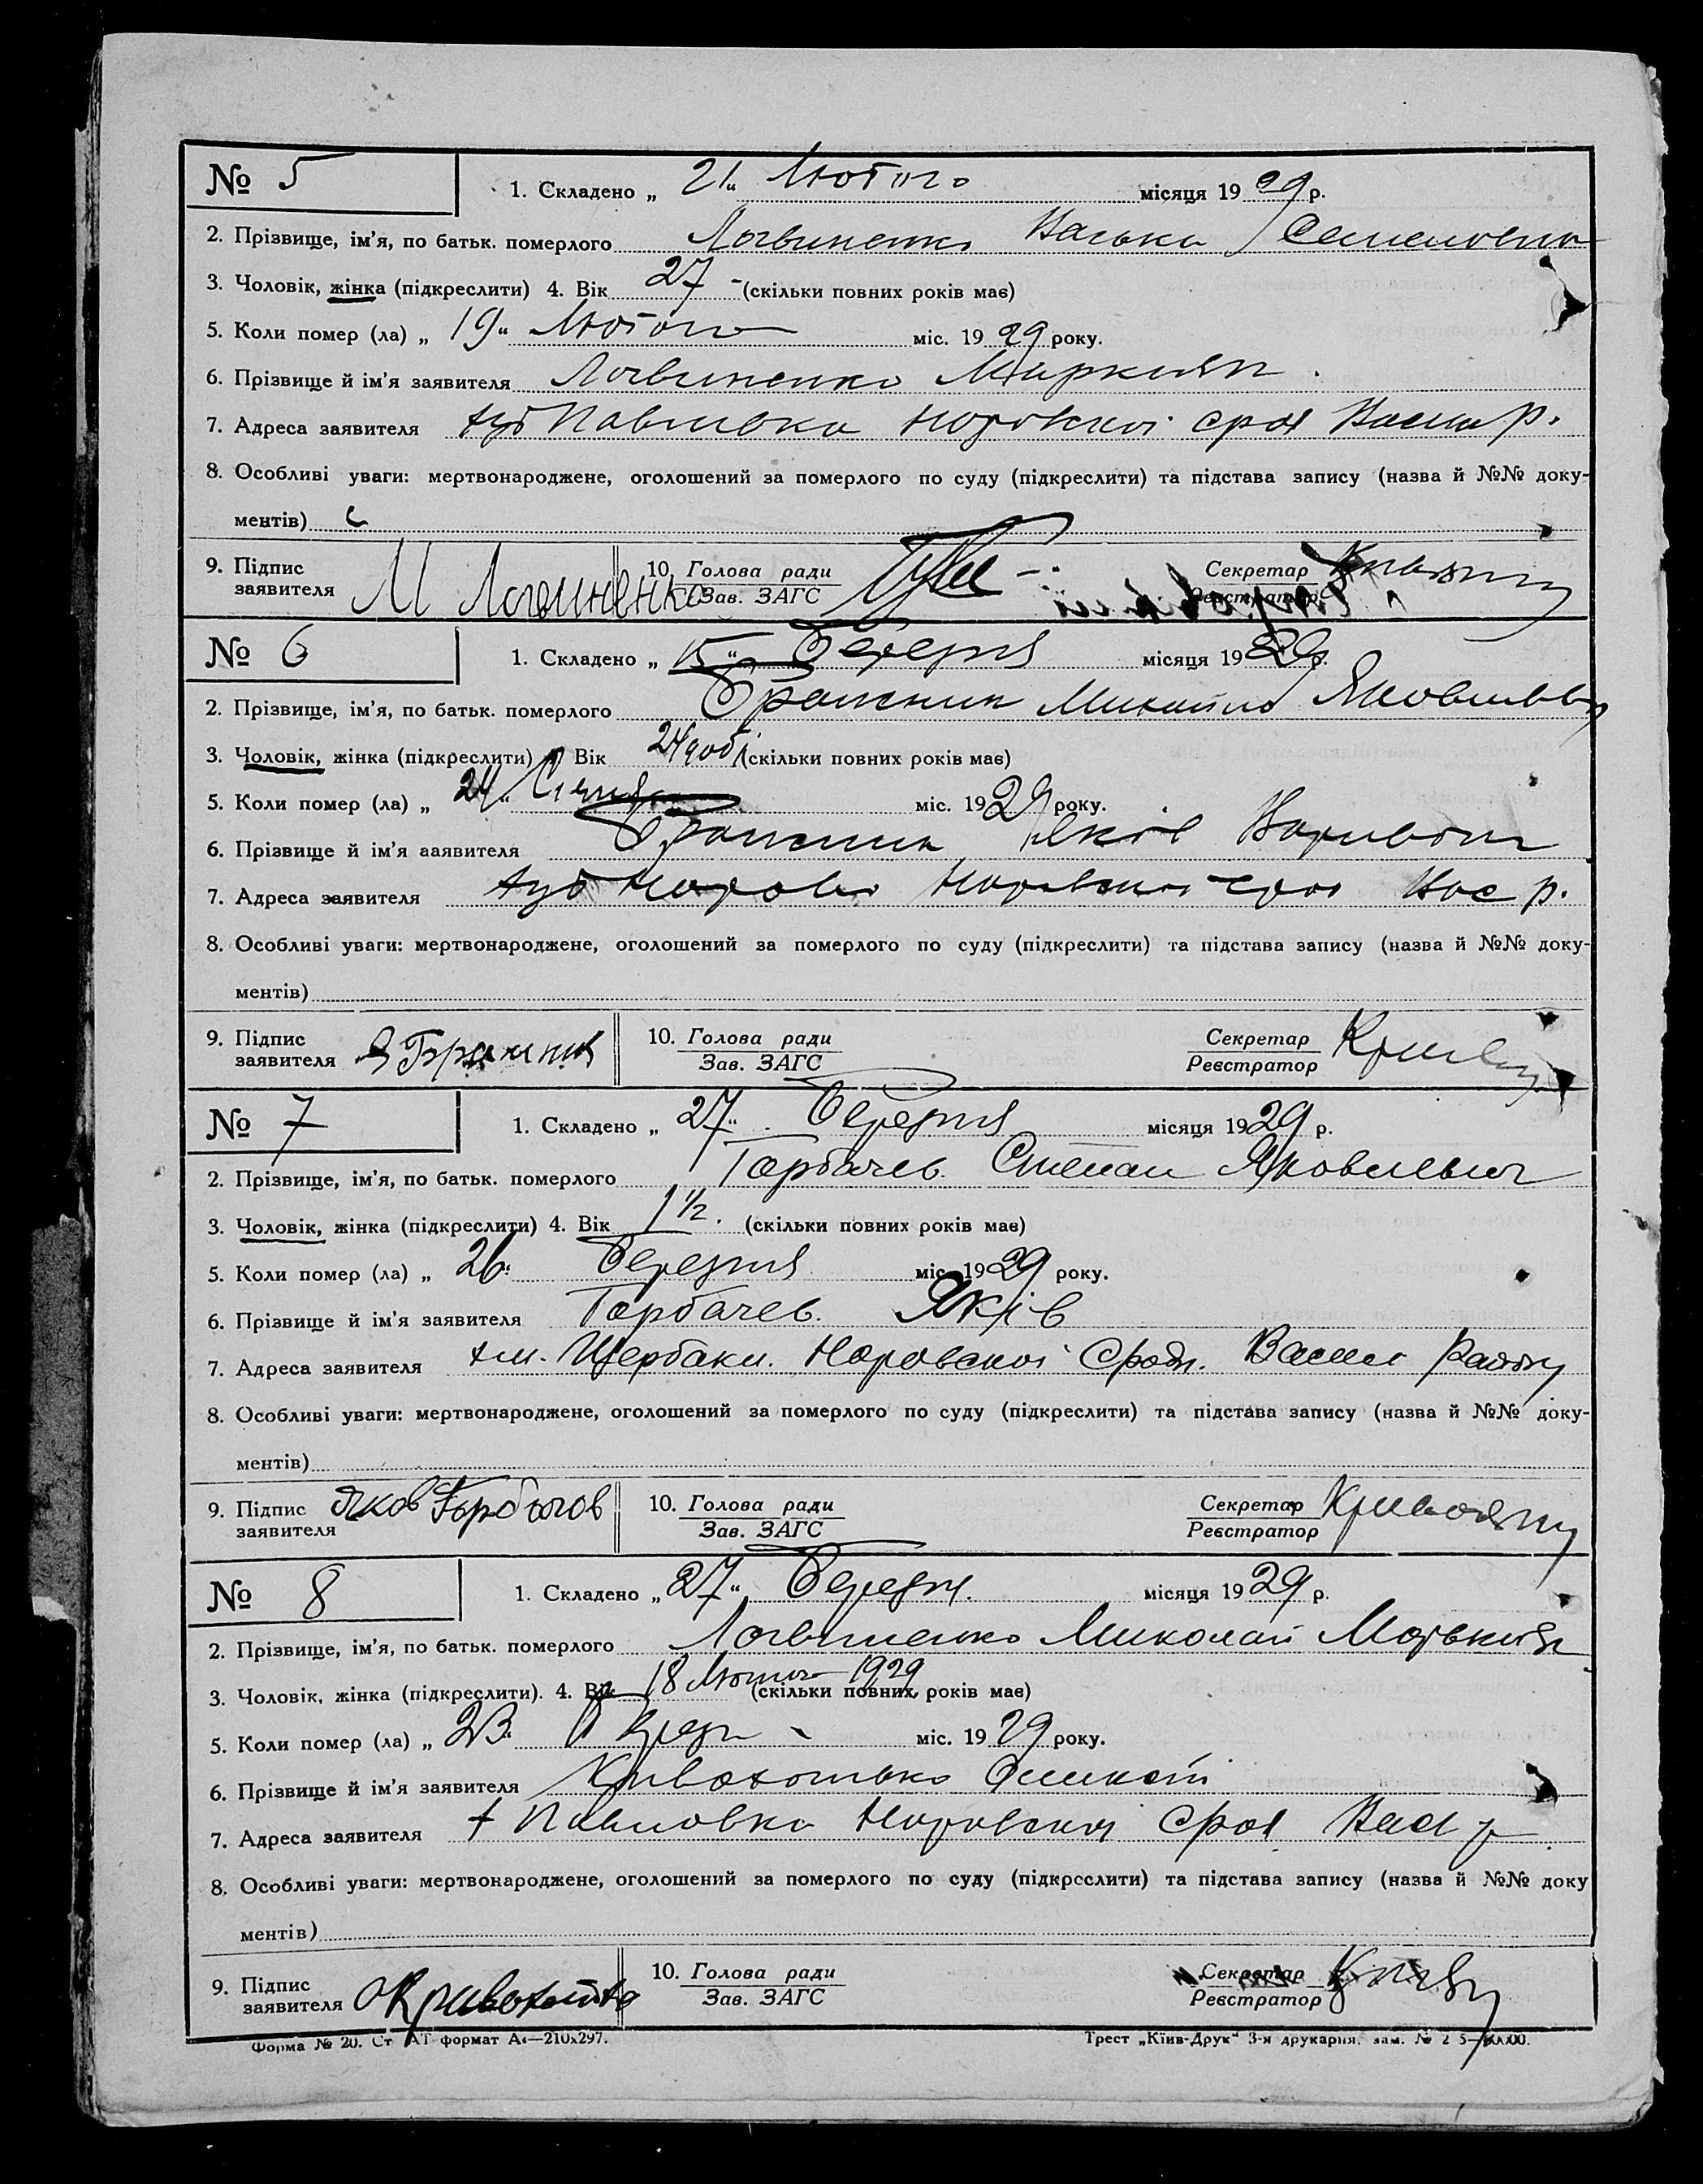 № 5
1. Складено „ 21 “ Лютого місяця 19 29 р.
2. Прізвище, ім’я, по батьк. померлого Логвиненко Васька Семеновна
3. Чоловік, жінка (підкреслити) 4. Вік 27 (скільки повних років має)
5. Коли помер (ла) „ 19 “ Лютого міс. 19 29 року.
6. Прізвище й ім’я заявителя Логвиненко Маркиян
7. Адреса заявителя хут Павлівка срад р.
8. Особливі уваги: мертвонароджене, оголошений за померлого по суду (підкреслити) та підстава запису (назва й №№ доку-
ментів)
9. Підпис заявителя М Логвиненко 10. Голова ради Зав. ЗАГС Секретар Реєстратор
№ 6
1. Складено „ 15 “ Березня місяця 19 29 р.
2. Прізвище, ім’я, по батьк. померлого Бражник Михайло Яковлевич
3. Чоловік, жінка (підкреслити) Вік 24 доби (скільки повних років має)
5. Коли помер (ла) „ 24 “ Січня міс. 19 29 року.
6. Прізвище й ім’я заявителя Бражник Яків
7. Адреса заявителя хут Вас р.
8. Особливі уваги: мертвонароджене, оголошений за померлого по суду (підкреслити) та підстава запису (назва й №№ доку-
ментів)
9. Підпис заявителя Я Бражник 10. Голова ради Зав. ЗАГС Секретар Реєстратор
№ 7
1. Складено „ 27 “ Березня місяця 19 29 р.
2. Прізвище, ім’я, по батьк. померлого Горбачев Степан Яковлевич
3. Чоловік, жінка (підкреслити) 4. Вік 1 1/2 (скільки повних років має)
5. Коли помер (ла) „ 26 “ Березня міс. 19 29 року.
6. Прізвище й ім’я заявителя Горбачев Яків
7. Адреса заявителя Щербаки. Норовской Сради. Васил Району
8. Особливі уваги: мертвонароджене, оголошений за померлого по суду (підкреслити) та підстава запису (назва й №№ доку-
ментів)
9. Підпис заявителя Яков Горбачов 10. Голова ради Зав. ЗАГС Секретар Реєстратор
№ 8
1. Складено „ 27 “ Березня місяця 19 29 р.
2. Прізвище, ім’я, по батьк. померлого Логвиненко Миколай
3. Чоловік, жінка (підкреслити). 4. Вік 18 Лютого 1929 (скільки повних років має)
5. Коли помер (ла) „ 23 “ міс. 19 29 року.
6. Прізвище й ім’я заявителя Кривохотько
7. Адреса заявителя х Павловка Норовской Срад Вас р
8. Особливі уваги: мертвонароджене, оголошений за померлого по суду (підкреслити) та підстава запису (назва й №№ доку
ментів)
9. Підпис заявителя 10. Голова ради Зав. ЗАГС Секретар Реєстратор
Форма № 20. Ст АТ формат А4—210х297. Трест „Київ-Друк“ 3-я друкарня, зам. №